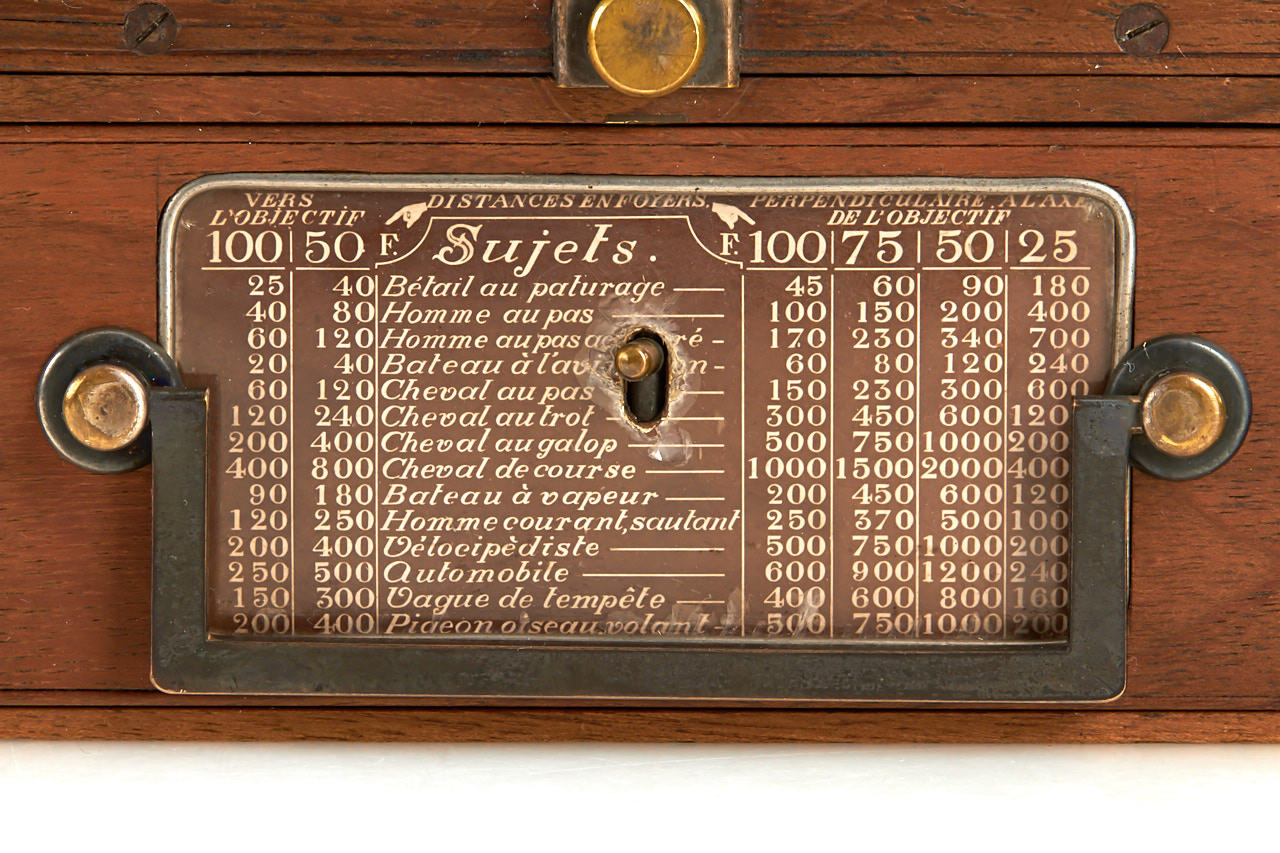 VERS DISTANCES EN FOYERS. PERPENDICULAIRE A L'AXE
L'OBJECTIF DE L'OBJECTIF
100 50 F. Sujets. F. 100 75 50 25
25 40 Bétail au paturage 45 60 90 180
40 80 Homme au pas 100 150 200 400
60 120 Homme au pas 170 230 340 700
20 40 Bateau à 60 80 120 240
60 120 Cheval au pas 150 230 300 600
120 240 Cheval au trot 300 450 600
200 400 Cheval au galop 500 750 1000
400 800 Cheval de course 1000 1500 2000
90 180 Bateau à vapeur 200 450 600
120 250 Homme courant, sautant 250 370 500
200 400 Vélocipèdiste 500 750 1000
250 500 Automobile 600 900 1200
150 300 Vague de tempête 400 600 800
200 400 Pigeon oiseau volant 500 750 1000